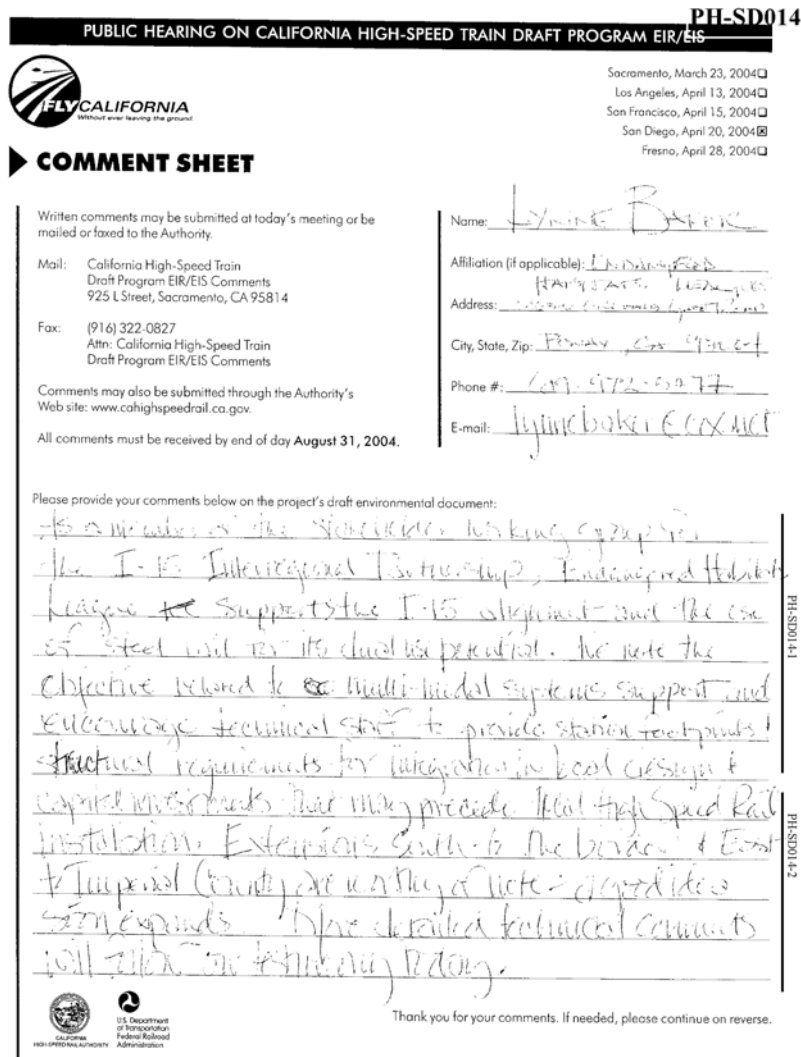 PH-SD014
PUBLIC HEARING ON CALIFORNIA HIGH-SPEED TRAIN DRAFT PROGRAM EIR/EIS
Sacramento, March 23, 2004☐
Los Angeles, April 13, 2004☐
San Francisco, April 15, 2004☐
San Diego, April 20, 2004☒
Fresno, April 28, 2004☐
FLY CALIFORNIA
Without ever leaving the ground.
COMMENT SHEET
Written comments may be submitted at today's meeting or be
mailed or faxed to the Authority.
Mail: California High-Speed Train
Draft Program EIR/EIS Comments
925 L Street, Sacramento, CA 95814
Fax: (916) 322-0827
Attn: California High-Speed Train
Draft Program EIR/EIS Comments
Comments may also be submitted through the Authority's
Web site: www.cahighspeedrail.ca.gov.
All comments must be received by end of day August 31, 2004.
Name: LYNNE BAKER
Affiliation (if applicable): ENDANGERED
HABITATS LEAGUE
Address:
City, State, Zip: Poway, CA
Phone #:
E-mail: lynnebaker@cox.net
Please provide your comments below on the project's draft environmental document:
As a member of the Stakeholder Working Group for
the I-15 Interregional Partnership, Endangered Habitats
League supports the I-15 alignment and the use
of steel rail for its dual use potential. We note the
objective related to multi-modal systems support and
encourage technical staff to provide station footprints &
structural requirements for integration in local design &
capital investments that may precede that High Speed Rail
installation. Extensions South to the border & East
to Imperial County are worthy of note - a good idea
soon expands. More detailed technical comments
will follow our testimony today.
PH-SD014-1
PH-SD014-2
CALIFORNIA
HIGH-SPEED RAIL AUTHORITY
U.S. Department
of Transportation
Federal Railroad
Administration
Thank you for your comments. If needed, please continue on reverse.